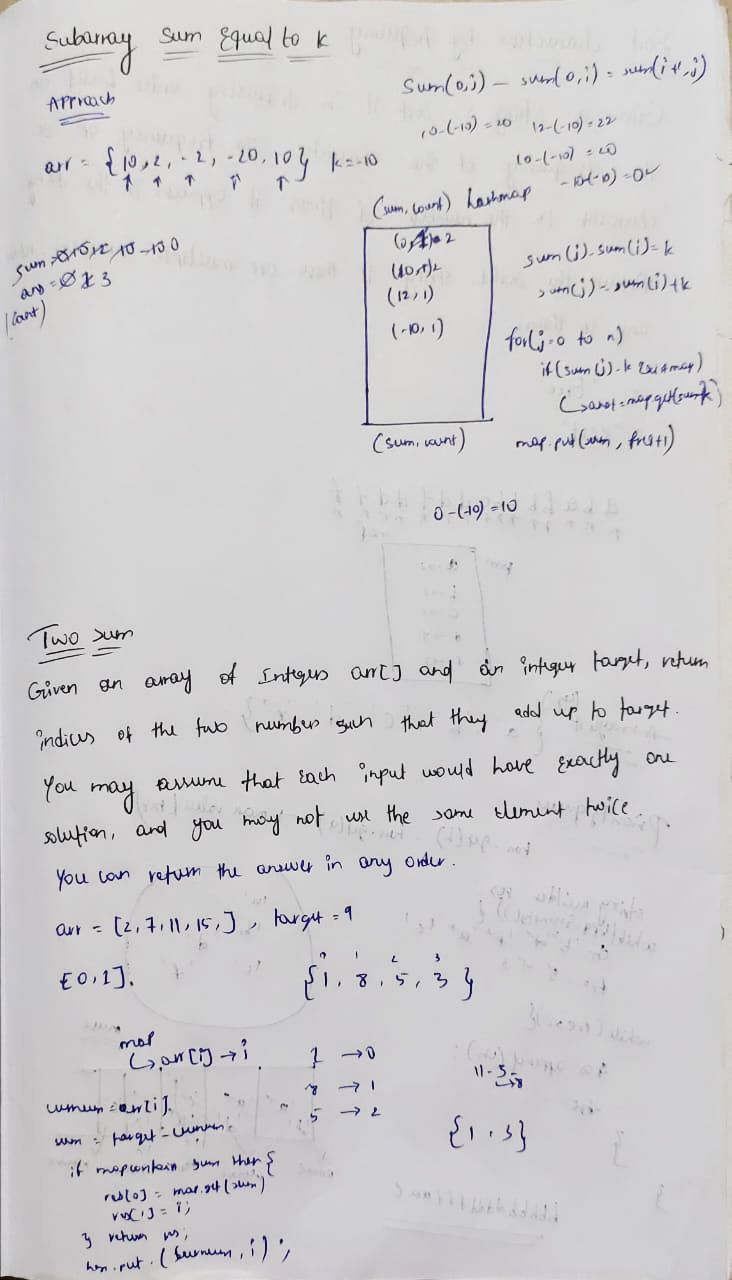 Subarray Sum Equal to k
Approach
sum(0,j) - sum(0,i) = sum(i+1,j)
10-(-10) = 20 12-(-10) = 22
10-(-10) = 20
-10-(-10) = 0
arr = {10, 2, -2, -20, 10} k=-10
(sum, count) hashmap
sum
ans =
(count)
(12, 1)
(-10, 1)
(sum, count)
sum(j) - sum(i) = k
sum(j) - sum(i)+k
for(j=0 to n)
if(sum(j)-k
map.put(sum,
0-(-10) = 10
Two sum
Given an array of Integers arr[] and an integer target, return
indices of the two numbers such that they add up to target.
You may assume that each input would have exactly one
solution, and you may not use the same element twice.
You can return the answer in any order.
arr = [2, 7, 11, 15,], target = 9
[0,1].
0 1 2 3
{1, 8, 5, 3}
map
↳ arr[i] → i
1 → 0
8 → 1
5 → 2
11-3
→8
{1, 3}
= arr[i].
= target -
if map contain sum then {
res[0] = map.get(sum)
res[1] = i;
} return res;
.put (, i);